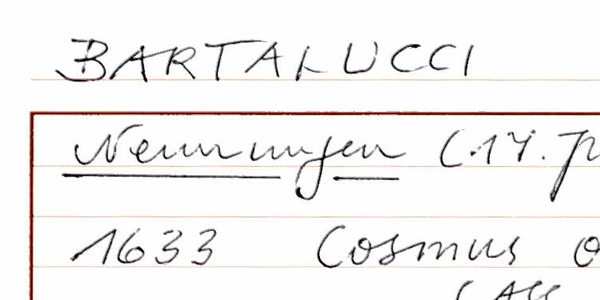 BARTALUCCI
Nennungen (17. J
1633 Cosmus